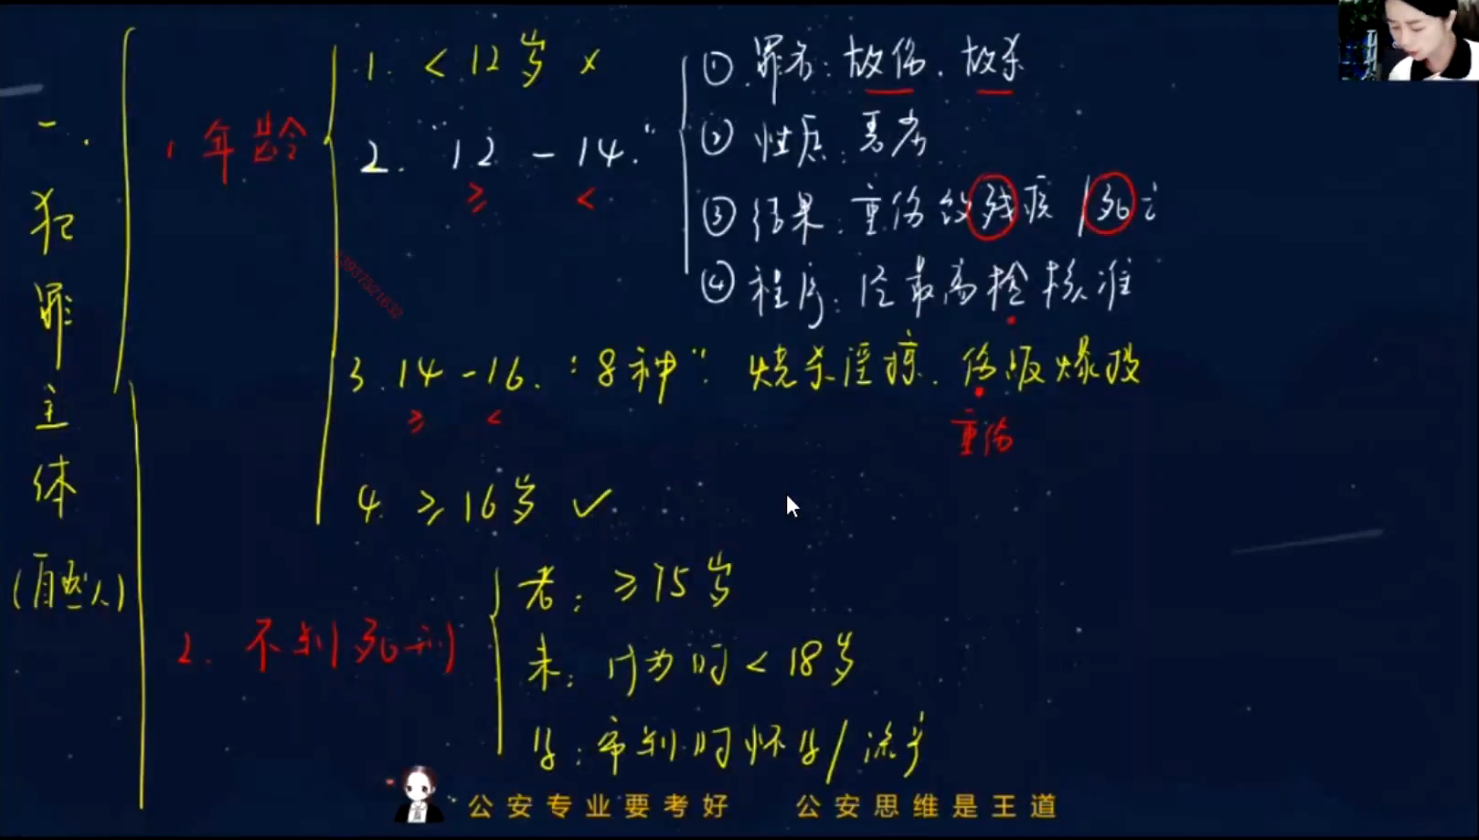 一.犯罪主体
(自然人)
1 年龄
1. < 12岁 ×
2. "12 - 14."
≥ <
① 罪名: 故伤. 故杀
② 性质: 恶劣
③ 结果: 重伤致残疾 / 死亡
④ 程序: 经最高检核准
3. 14 - 16. "8种": 烧杀淫掠. 伤贩爆投
≥ <
重伤
4. ≥ 16岁 ✓
2. 不判死刑
老: ≥ 75岁
未: 行为时 < 18岁
孕: 审判时怀孕/流产
公安专业要考好 公安思维是王道